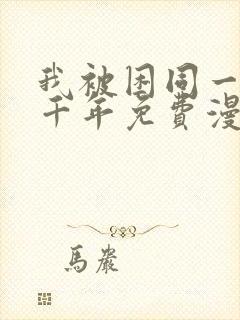 我被困同一
千年免費漫
馬嚴